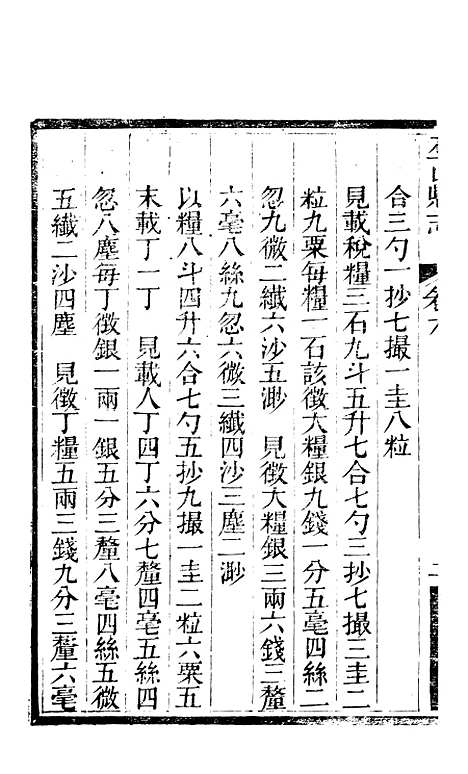 合三勺一抄七撮一圭八粒
見載稅糧三石九斗五升七合七勺三抄七撮三圭二
粒九粟每糧一石該徵大糧銀九錢一分五毫四絲二
忽九微二纖六沙五渺　見徵大糧銀三兩六錢三釐
六毫八絲九忽六微三纖四沙三塵一渺
以糧八斗四升六合七勺五抄九撮一圭二粒六粟五
末載丁一丁　見載人丁四丁六分七釐四毫五絲四
忽八塵每丁徵銀一兩一銀五分三釐八毫四絲五微
五纖二沙四塵　見徵丁糧五兩三錢九分三釐六毫
縣志
卷六